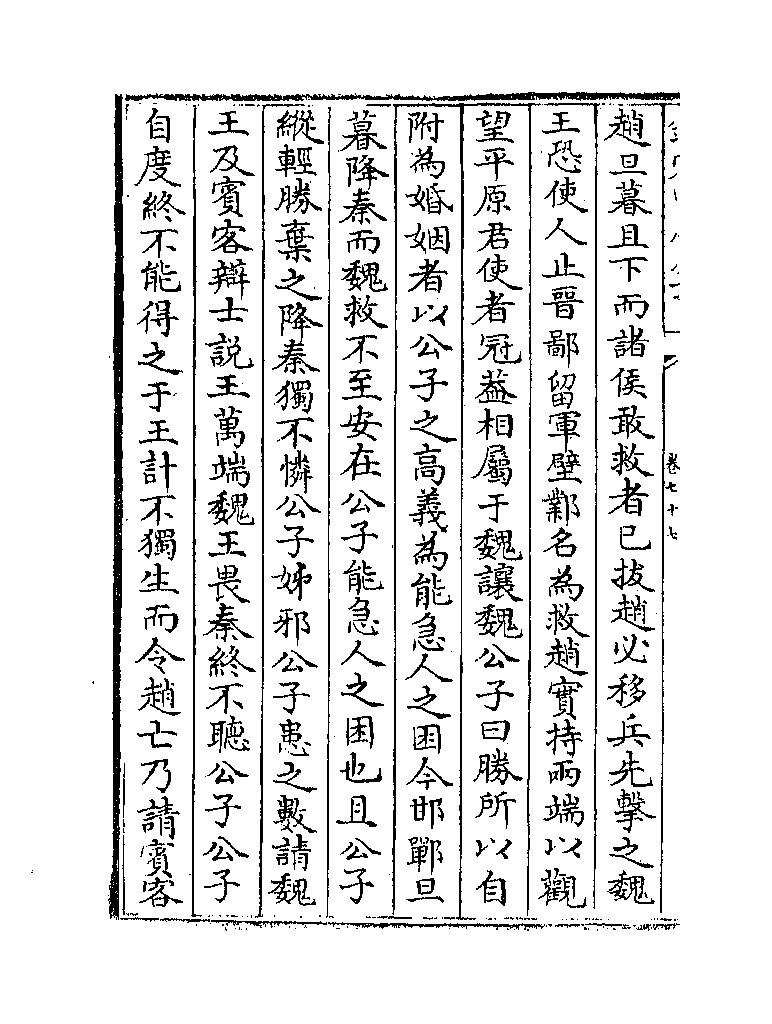 趙旦暮且下而諸侯敢救者已拔趙必移兵先擊之魏
王恐使人止晉鄙留軍壁鄴名為救趙實持兩端以觀
望平原君使者冠葢相屬于魏讓魏公子曰勝所以自
附為婚姻者以公子之高義為能急人之困今邯鄲旦
暮降秦而魏救不至安在公子能急人之困也且公子
縱輕勝棄之降秦獨不憐公子姊邪公子患之數請魏
王及賓客辯士説王萬端魏王畏秦終不聽公子公子
自度終不能得之于王計不獨生而令趙亡乃請賓客
卷七十七